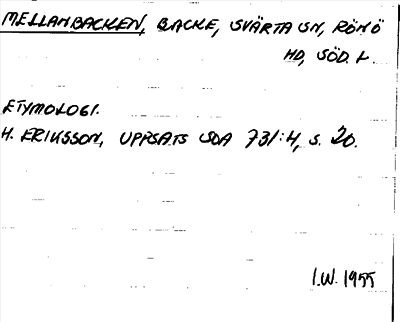 MELLANBACKEN, BACKE, SVÄRTA SN, RÖNÖ
HD, SÖD. L.
ETYMOLOGI.
H. ERIKSSON, UPPSATS SOA 731:4, S. 20.
I.W. 1955